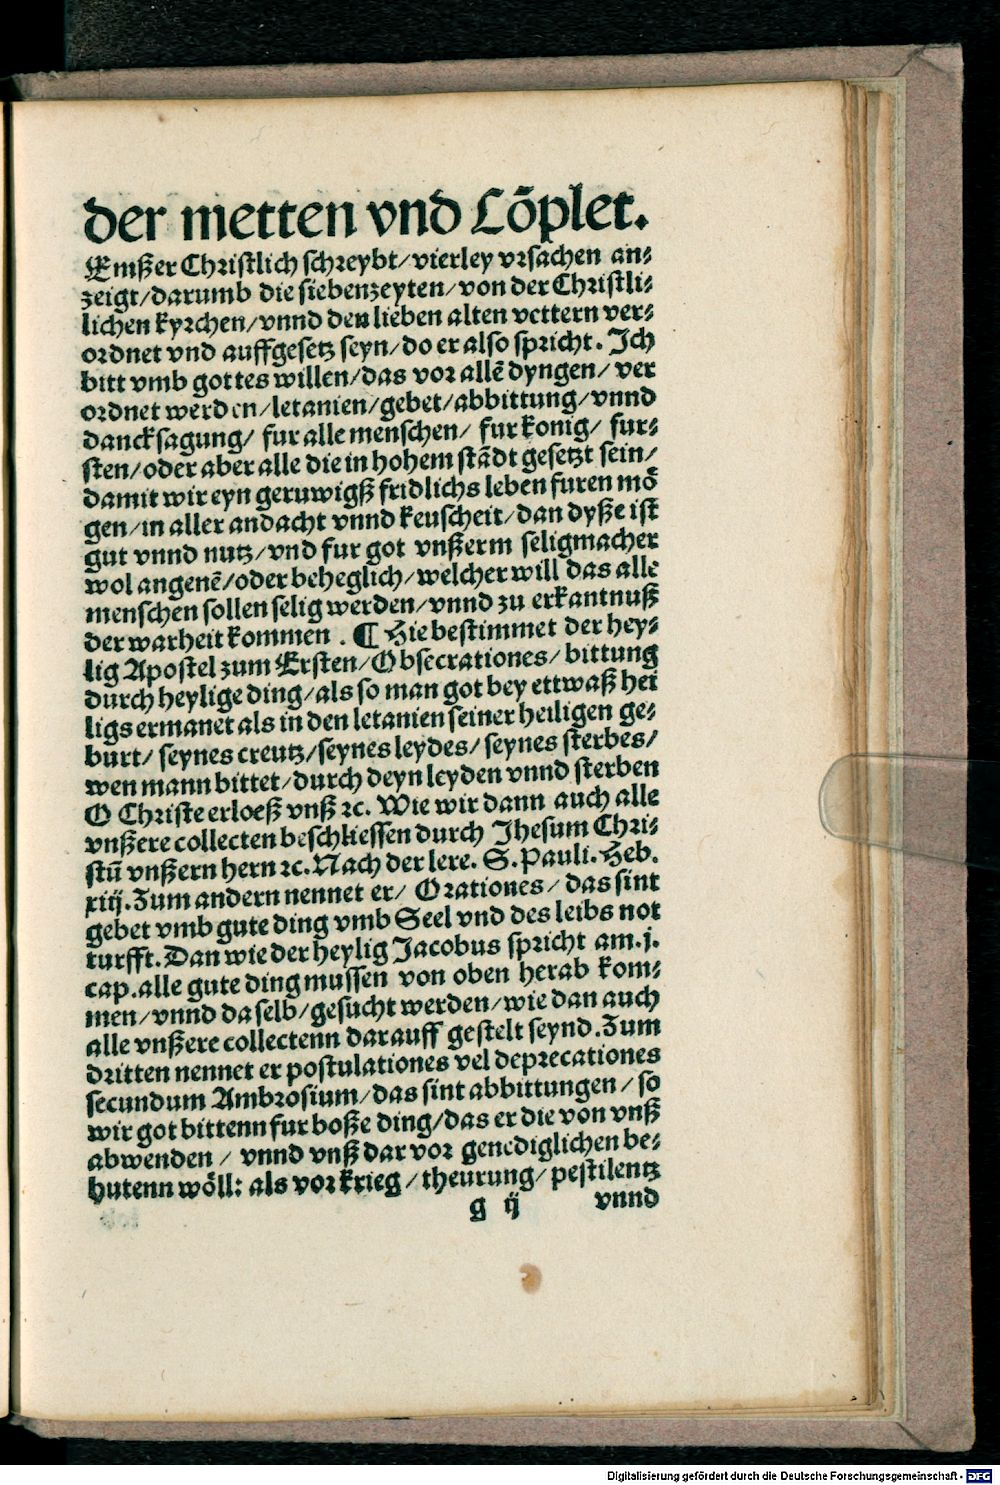 der metten vnd Cõplet.
Emßer Christlich schreybt/vierley vrsachen an⸗
zeigt/darumb die siebenzeyten/von der Christli⸗
lichen kyrchen/vnnd den lieben alten vettern ver⸗
ordnet vnd auffgesetz seyn/do er also spricht. Ich
bitt vmb gottes willen/das vor allẽ dyngen/ ver
ordnet werden/letanien/gebet/abbittung/vnnd
dancksagung/ fur alle menschen/ fur konig/ fur⸗
sten/oder aber alle die in hohem stãdt gesetzt sein/
damit wir eyn geruwigß fridlichs leben furen mö
gen/in aller andacht vnnd keuscheit/dan dyße ist
gut vnnd nutz/vnd fur got vnßerm seligmacher
wol angenẽ/oder beheglich/welcher will das alle
menschen sollen selig werden/vnnd zu erkantnuß
der warheit kommen . ¶ Hie bestimmet der hey⸗
lig Apostel zum Ersten/Obsecrationes/bittung
durch heylige ding/als so man got bey ettwaß hei
ligs ermanet als in den letanien seiner heiligen ge⸗
burt/ seynes creutz/seynes leydes/ seynes sterbes/
wen mann bittet/durch deyn leyden vnnd sterben
O Christe erloeß vnß ꝛc. Wie wir dann auch alle
vnßere collecten beschliessen durch Jhesum Chri⸗
stũ vnßern hern ꝛc. Nach der lere. S. Pauli. Heb.
xiij. Zum andern nennet er/ Orationes/ das sint
gebet vmb gute ding vmb Seel vnd des leibs not
turfft. Dan wie der heylig Jacobus spricht am. j.
cap. alle gute ding mussen von oben herab kom⸗
men/vnnd daselb/gesucht werden/wie dan auch
alle vnßere collectenn darauff gestelt seynd. Zum
dritten nennet er postulationes vel deprecationes
secundum Ambrosium/das sint abbittungen/ so
wir got bittenn fur boße ding/das er die von vnß
abwenden / vnnd vnß dar vor genediglichen be⸗
hutenn wöll: als vor krieg/theurung/pestilentz
g ij vnnd
Digitalisierung gefördert durch die Deutsche Forschungsgemeinschaft - DFG